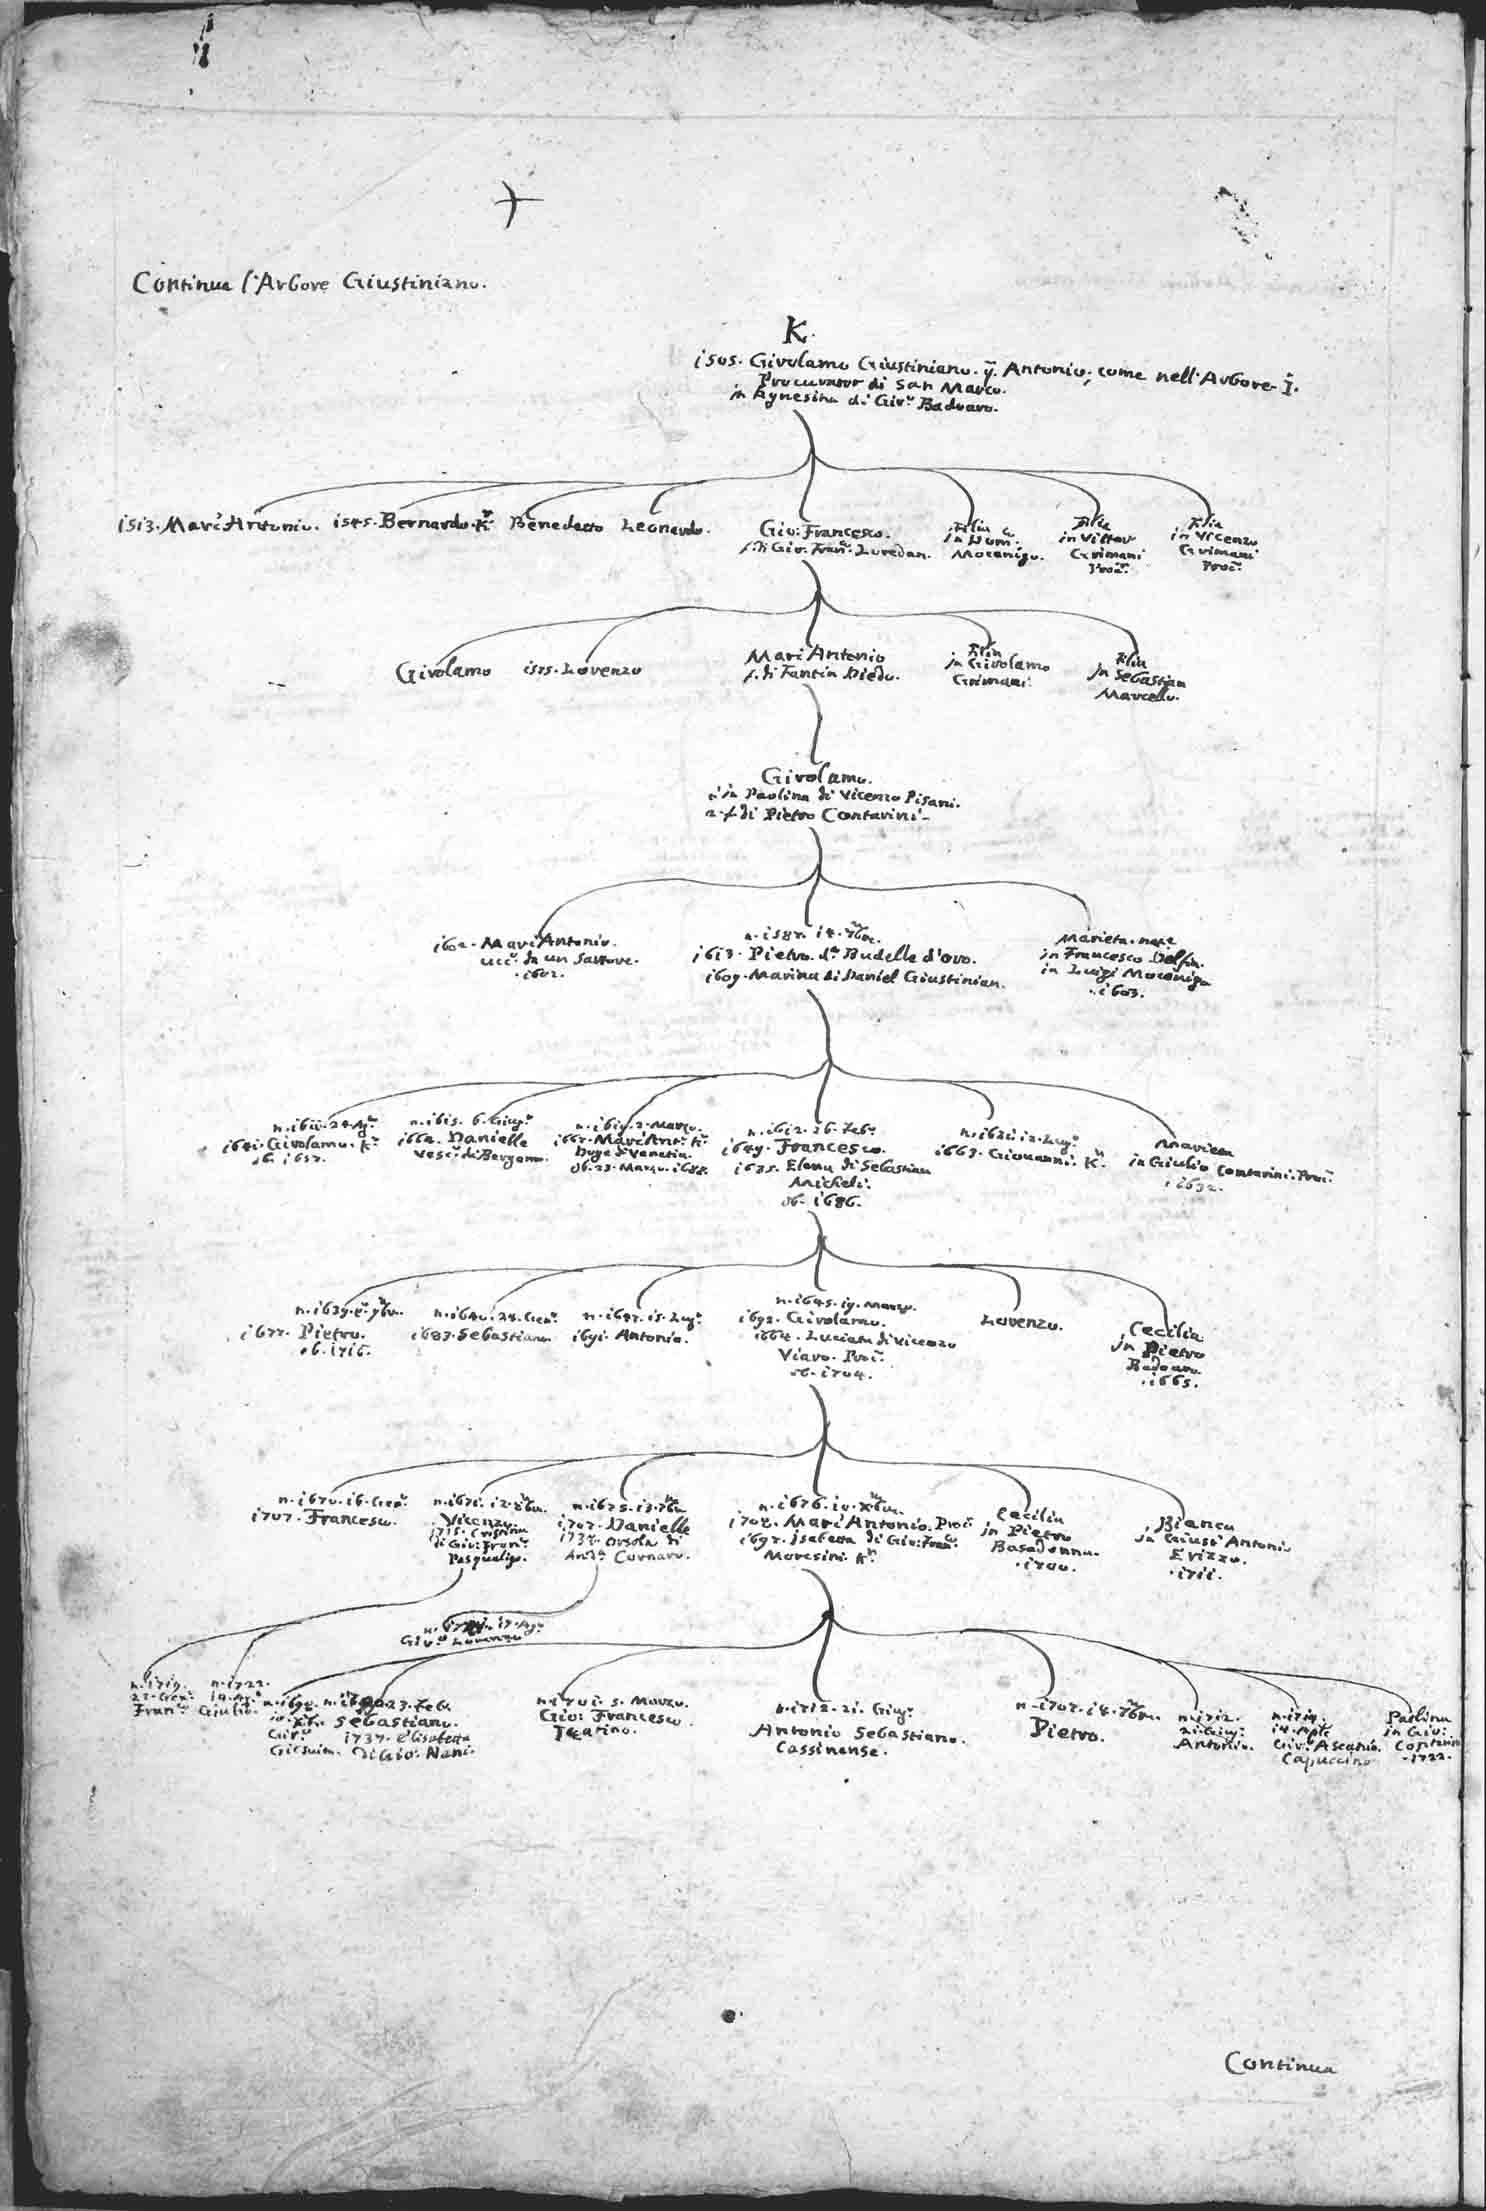 Continua l'Arbore Giustiniano.
K.
1505. Girolamo Giustiniano. q. Antonio, come nell'Arbore I.
Procurator di San Marco.
in Agnesina di Gir.º Badoaro.
1513. Marc'Antonio.
1545. Bernardo K.r
Benedetto
Leonardo.
Gio: Francesco.
f. di Gio. Fran.co Loredan.
Filia
in Dom.co
Mocenigo.
Filia
in Vittor
Grimani
Proc.r
Filia
in Vicenzo
Grimani
Proc.r
Girolamo
Lorenzo
Marc'Antonio
f. di Fantin Diedo.
Filia
in Girolamo
Grimani.
Filia
in Sebastian
Marcello.
Girolamo.
in Paolina di Vicenzo Pisani.
2. f. di Pietro Contarini
1602. Marc'Antonio.
ucc.º da un Sartore.
1602.
n. 1587. 14. 7bre.
1613. Pietro. d.º Budelle d'oro.
1609. Marina di Daniel Giustinian.
Marieta. nate
in Francesco Dolfin.
in Luigi Mocenigo
1603.
n. 1611. 24. Ag.º
1641. Girolamo. K.r
ob. 1657.
n. 1615. 6. Giug.º
1662. Danielle
Vesc.º di Bergamo.
n. 1619. 2. Marzo.
1667. Marc'Ant.º K.r
Duge di Venetia.
ob. 23. Marzo. 1688.
n. 1612. 26. Feb.º
1649. Francesco.
1635. Elena di Sebastian
Micheli.
ob. 1686.
n. 1621. 12. Lug.º
1663. Giouanni. K.r
Marieta
in Giulio Contarini. Proc.r
1632.
n. 1639. 7bre.
1677. Pietro.
ob. 1716.
n. 1640. 24. Gen.º
1687. Sebastiano
n. 1647. 15. Lug.º
1691. Antonio.
n. 1645. 19. Marzo.
1692. Girolamo.
1664. Luciata di Vicenzo
Viaro. Proc.r
ob. 1704.
Lorenzo.
Cecilia
in Pietro
Badoaro
1665.
n. 1670. 16. Gen.º
1707. Francesco.
n. 1671. 12. Xbre.
Vicenzo.
1715. Cristina
di Gio: Fran.co
Pasqualigo.
n. 1675. 13. 7bre
1707. Danielle
1737. Orsola di
And.a Cornaro.
n. 1676. 10. Xbre.
1708. Marc'Antonio. Proc.r
1697. Isabetta di Gio: Fran.co
Moresini. K.r
Cecilia
in Pietro
Basadonna.
1700.
Bianca
in Giust'Antonio
Erizzo.
1711.
17. Ag.º
Gio: Lorenzo
n. 1719.
22. Gen.º
Fran.co
n. 1722.
14. Ag.º
Giulio.
n. 1698.
10. Xbre
Gir.º
Giesuita.
23. Feb.
Sebastiano.
1737. Elisabetta
di Gio: Nani.
n. 1701. 5. Marzo.
Gio: Francesco
Teatino.
n. 1712. 21. Giug.º
Antonio Sebastiano.
Cassinense.
n. 1707. 14. 7bre.
Pietro.
n. 1712.
21. Giug.º
Antonio.
n. 1714.
14. Aple
Gio: Ascanio.
Capuccino
Paolina
in Gio:
Contarini
1722.
Continua